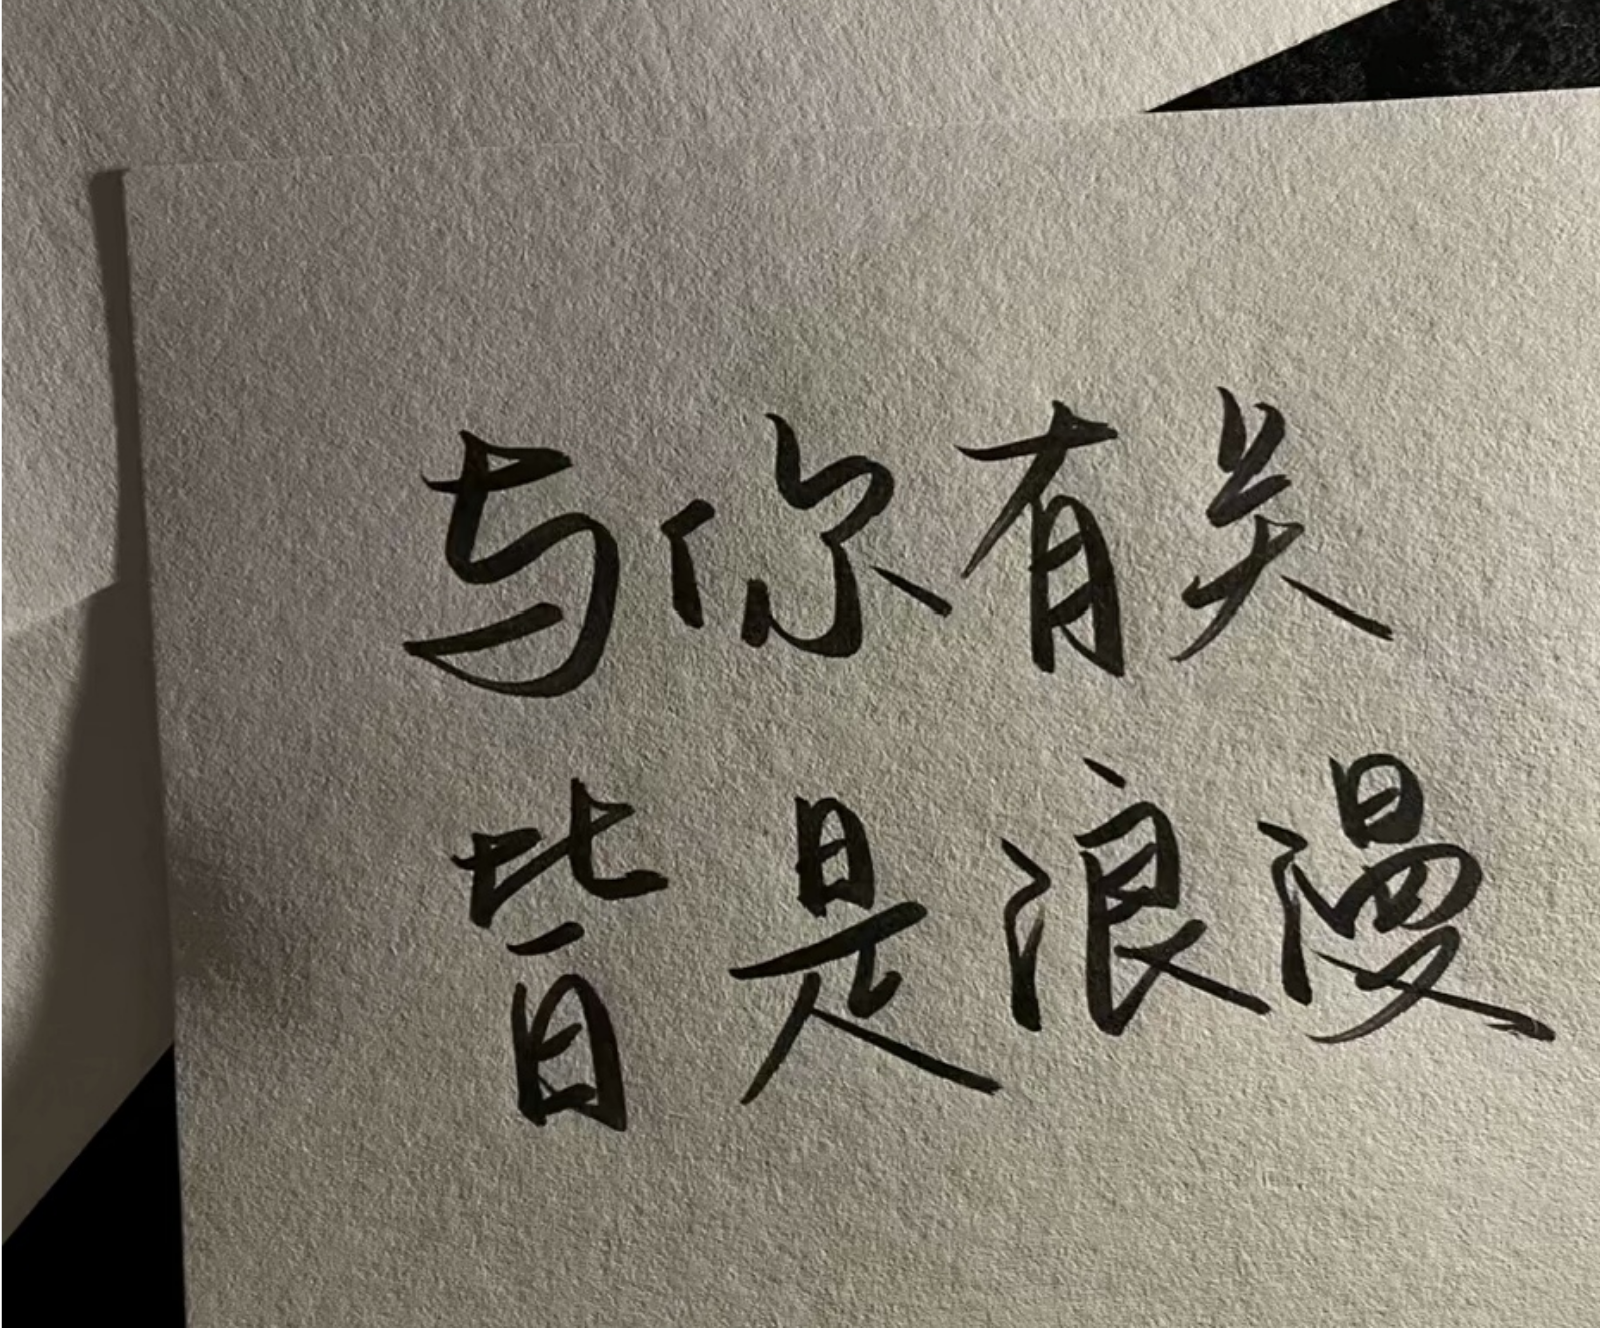 与你有关
皆是浪漫